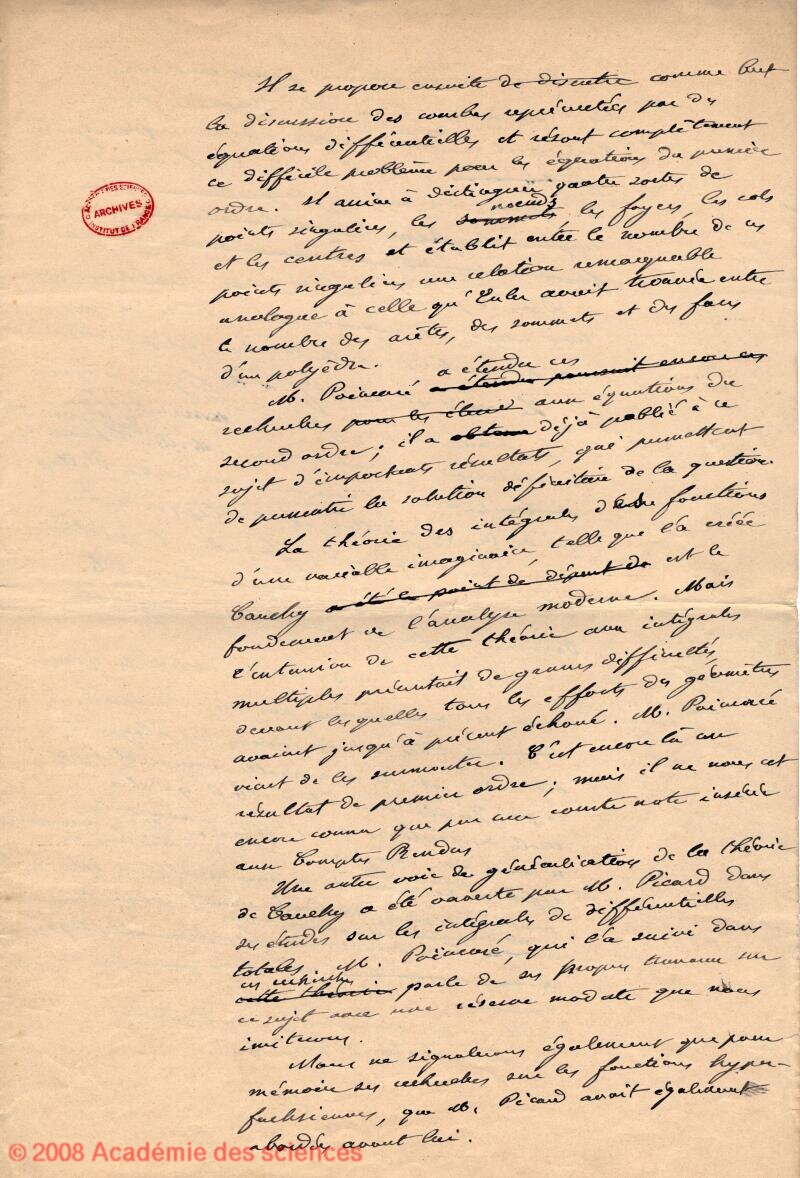 Il se propose ensuite de discuter comme but
la discussion des courbes représentées par des
équations différentielles et résout complètement
ce difficile problème pour les équations du premier
ordre. Il arrive à distinguer quatre sortes de
points singuliers, les sommets noeuds, les foyers, les cols
et les centres et établit entre le nombre de ces
points singuliers une relation remarquable
analogue à celle qu'Euler avait trouvée entre
le nombre des arêtes, des sommets et des faces
d'un polyèdre.
M. Poincaré a étendu ces a étendu poursuit encore ces
recherches pour les étend aux équations du
second ordre; il a obtenu déjà publié à ce
sujet d'importants résultats, qui permettent
de pressentir la solution définitive de la question.
La théorie des intégrales des fonctions
d'une variable imaginaire, telle que l'a créée
Cauchy a été le point de départ de est le
fondement de l'analyse moderne. Mais
l'extension de cette théorie aux intégrales
multiples présentait de graves difficultés
devant lesquelles tous les efforts des géomètres
avaient jusqu'à présent échoué. M. Poincaré
vient de les surmonter. C'est encore là un
résultat de premier ordre; mais il ne nous est
encore connu que par une courte note insérée
aux Comptes Rendus
Une autre voie de généralisation de la théorie
de Cauchy a été ouverte par M. Picard dans
ses études sur les intégrales de différentielles
totales. M. Poincaré, qui l'a suivi dans
ces recherches cette théorie parle de ses propres travaux sur
ce sujet avec une réserve modeste que nous
imiterons.
Nous ne signalerons également que pour
mémoire ses recherches sur les fonctions hyper-
fuchsiennes, que M. Picard avait également
abordées avant lui.
ACADÉMIE DES SCIENCES
ARCHIVES
INSTITUT DE FRANCE
© 2008 Académie des sciences